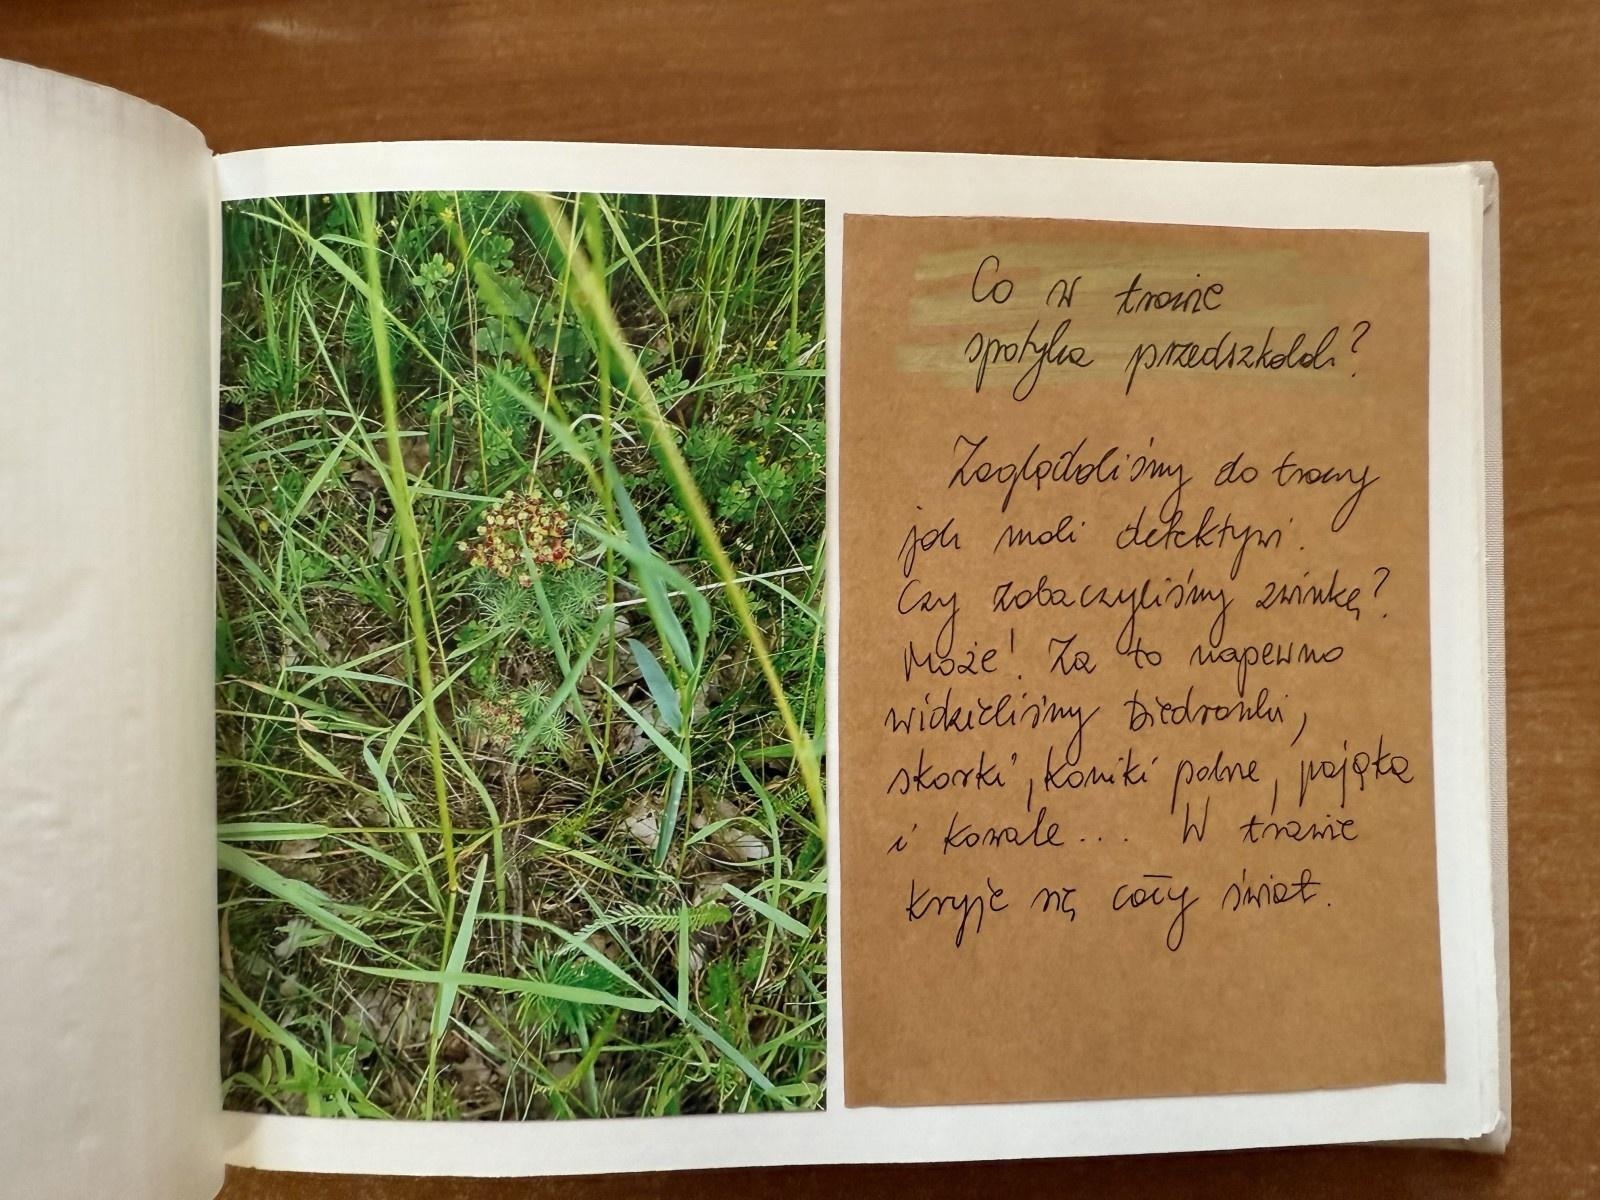 Co w trawie
spotyka przedszkolak?
Zaglądaliśmy do trawy
jak mali detektywi.
Czy zobaczyliśmy zwinkę?
Może! Za to napewno
widzieliśmy biedronki,
skorki, koniki polne, pająka
i kowale... W trawie
kryje się cały świat.